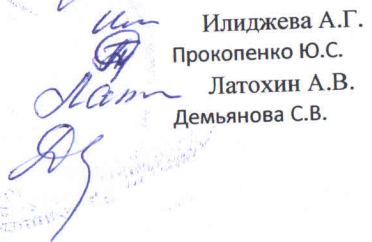 Илиджева А.Г.
Прокопенко Ю.С.
Латохин А.В.
Демьянова С.В.